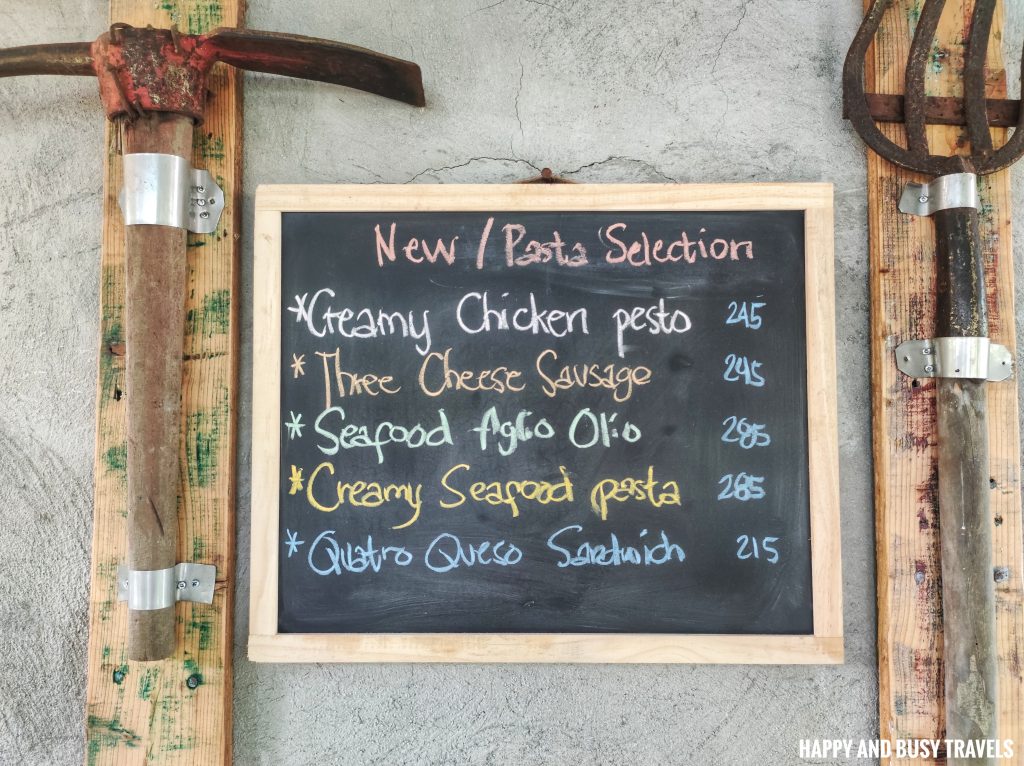 New / Pasta Selection
*Creamy Chicken pesto 245
* Three Cheese Sausage 245
* Seafood Aglio Olio 285
*Creamy Seafood pasta 285
* Quatro Queso Sandwich 215
HAPPY AND BUSY TRAVELS